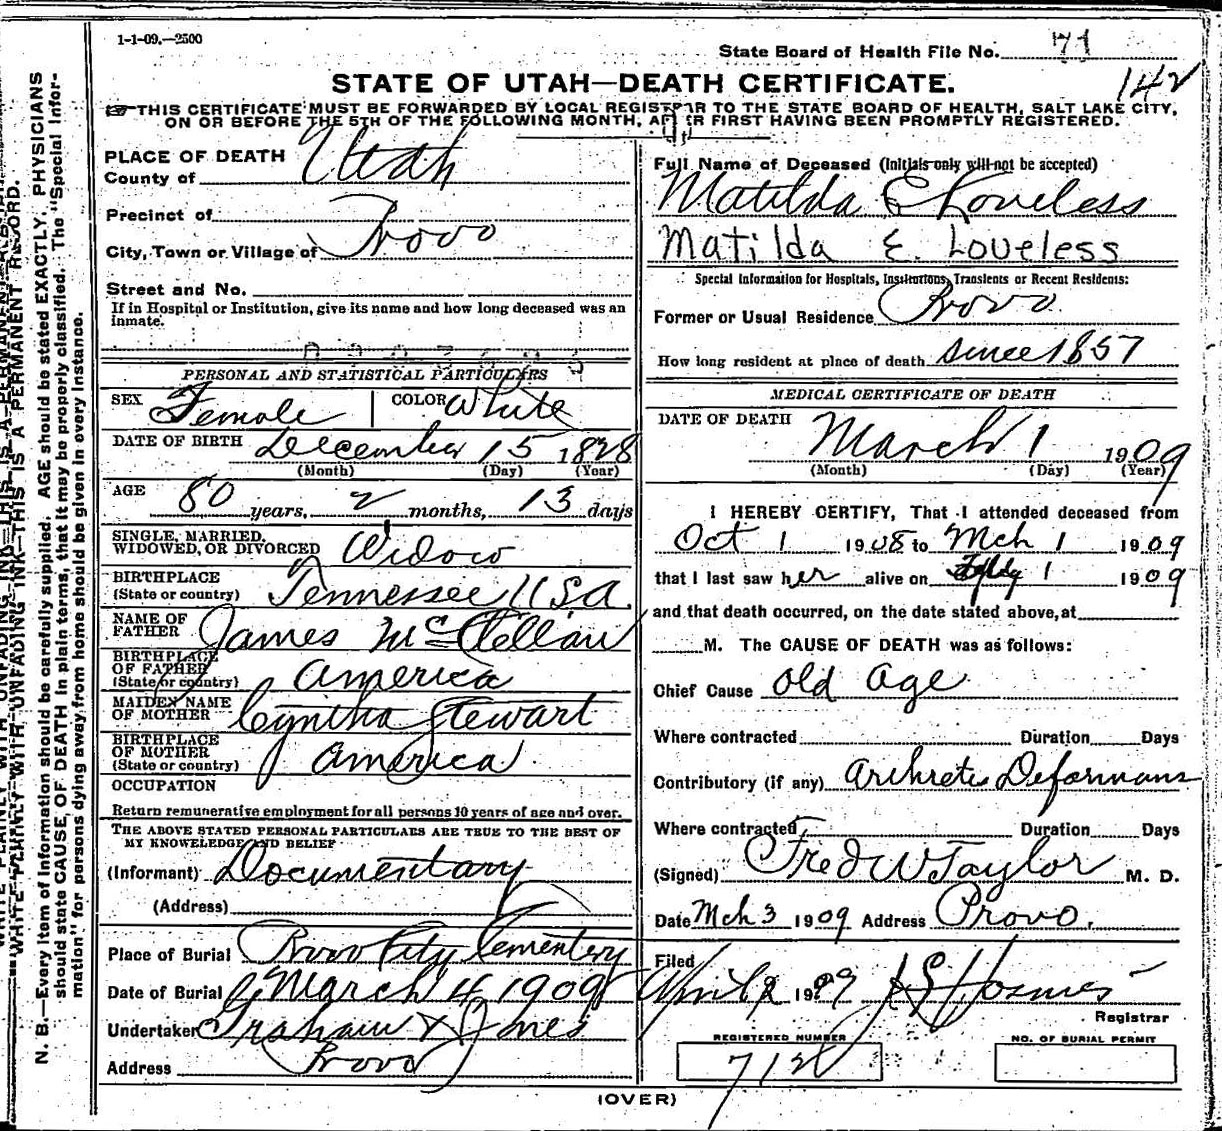 1-1-09.—2500
State Board of Health File No. 71
142
STATE OF UTAH—DEATH CERTIFICATE.
THIS CERTIFICATE MUST BE FORWARDED BY LOCAL REGISTRAR TO THE STATE BOARD OF HEALTH, SALT LAKE CITY,
ON OR BEFORE THE 5TH OF THE FOLLOWING MONTH, AFTER FIRST HAVING BEEN PROMPTLY REGISTERED.
PLACE OF DEATH
County of Utah
Precinct of
City, Town or Village of Provo
Street and No.
If in Hospital or Institution, give its name and how long deceased was an
inmate.
PERSONAL AND STATISTICAL PARTICULARS
SEX Female COLOR White
DATE OF BIRTH December 15 1828
(Month) (Day) (Year)
AGE 80 years, 2 months, 13 days
SINGLE, MARRIED,
WIDOWED, OR DIVORCED Widow
BIRTHPLACE
(State or country) Tennessee U.S.A.
NAME OF
FATHER James McClellan
BIRTHPLACE
OF FATHER
(State or country) America
MAIDEN NAME
OF MOTHER Cyntha Stewart
BIRTHPLACE
OF MOTHER
(State or country) America
OCCUPATION
Return remunerative employment for all persons 10 years of age and over.
THE ABOVE STATED PERSONAL PARTICULARS ARE TRUE TO THE BEST OF
MY KNOWLEDGE AND BELIEF
(Informant) Documentary
(Address)
Place of Burial Provo City Cementery
Date of Burial March 4 1909
Undertaker Graham & Jones
Address Provo
Full Name of Deceased (Initials only will not be accepted)
Matilda E Loveless
Matilda E. Loveless
Special Information for Hospitals, Institutions, Transients or Recent Residents:
Former or Usual Residence Provo
How long resident at place of death since 1857
MEDICAL CERTIFICATE OF DEATH
DATE OF DEATH March 1 1909
(Month) (Day) (Year)
I HEREBY CERTIFY, That I attended deceased from
Oct 1 1908 to Mch 1 1909
that I last saw her alive on 1 1909
and that death occurred, on the date stated above, at
M. The CAUSE OF DEATH was as follows:
Chief Cause Old Age
Where contracted Duration Days
Contributory (if any) Deformans
Where contracted Duration Days
(Signed) Fred W Taylor M. D.
Date Mch 3 1909 Address Provo.
Filed
April 2 1909 Hosmes
Registrar
REGISTERED NUMBER
NO. OF BURIAL PERMIT
(OVER)
WRITE PLAINLY WITH UNFADING INK—THIS IS A PERMANENT RECORD.
N. B.—Every item of information should be carefully supplied. AGE should be stated EXACTLY. PHYSICIANS
should state CAUSE OF DEATH in plain terms, that it may be properly classified. The "Special Infor-
mation" for persons dying away from home should be given in every instance.